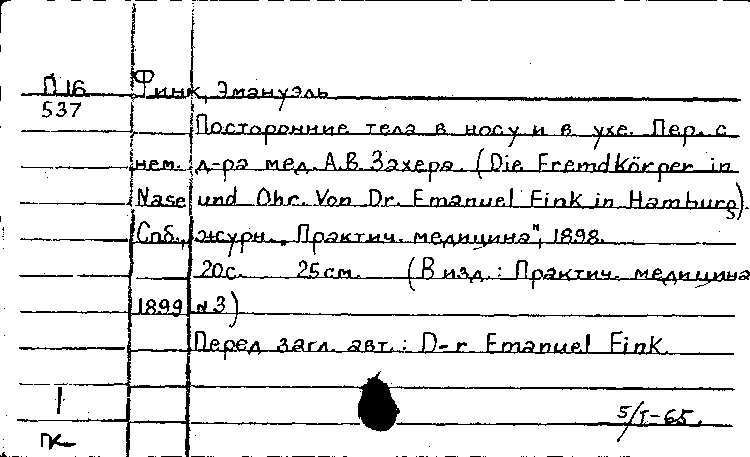 П 16 Финк, Эмануэль
537
Посторонние тела в носу и в ухе. Пер. с
нем. д-ра мед. А.В. Захера. (Die Fremdkörper in
Nase und Ohr. Von Dr. Emanuel Fink in Hamburg).
Спб., журн. „Практич. медицина", 1898.
20с. 25см. (В изд.: Практич. медицина
1899 №3)
Перед загл. авт.: D-r Emanuel Fink.
1
5/I-65.
ПК